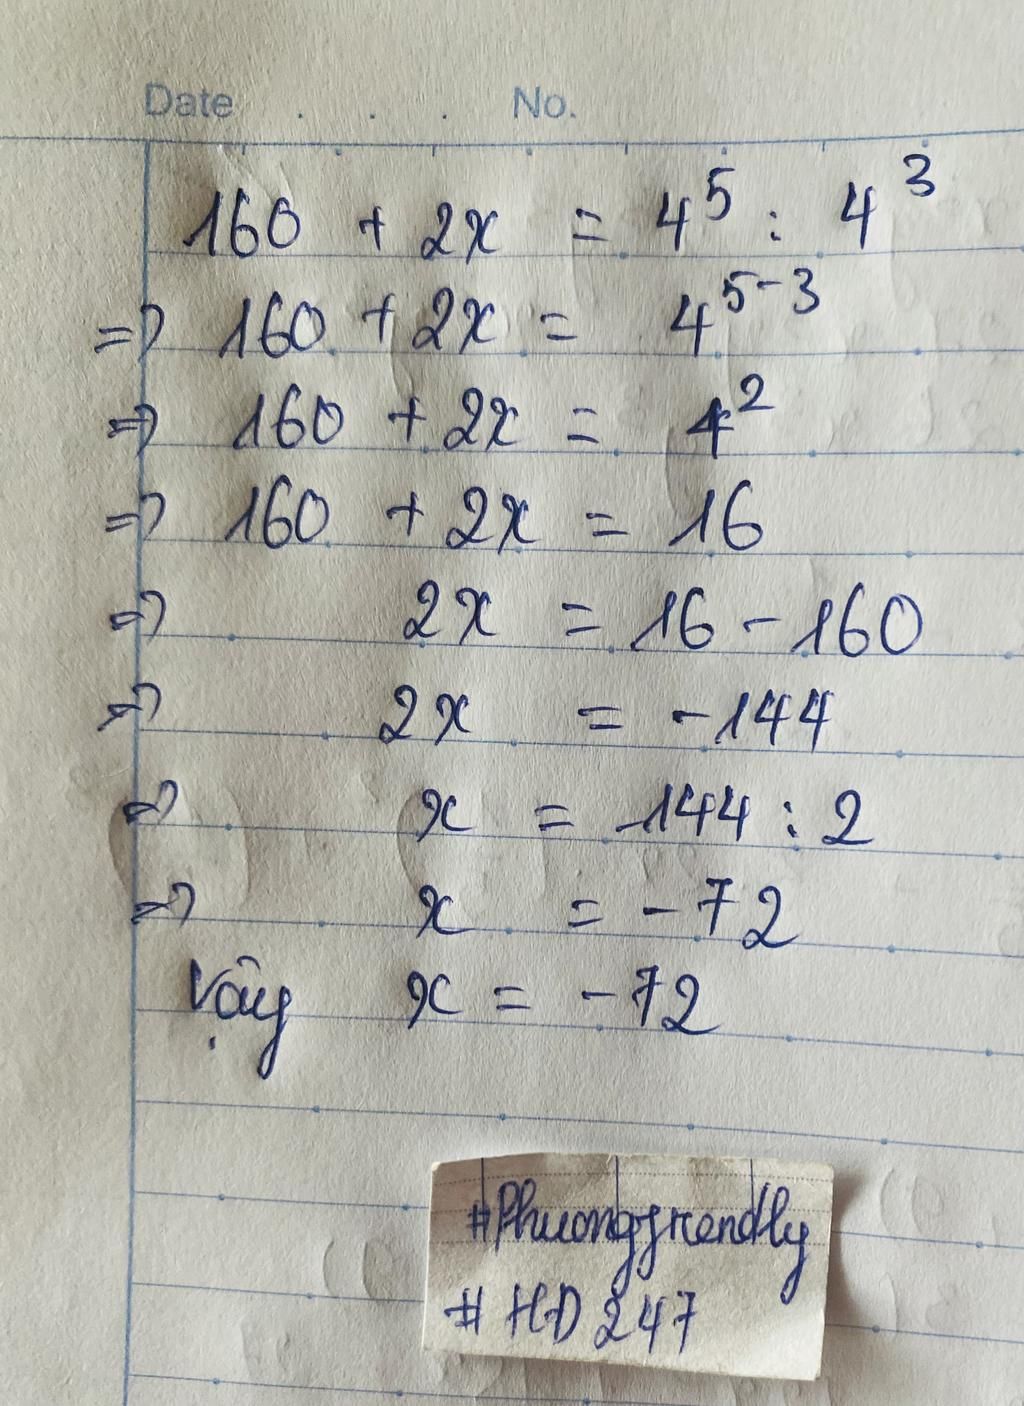 Date . . . No.
160 + 2x = 4⁵ : 4³
=> 160 + 2x = 4⁵⁻³
=> 160 + 2x = 4²
=> 160 + 2x = 16
=> 2x = 16 - 160
=> 2x = -144
=> x = -144 : 2
=> x = -72
Vậy x = -72
#Phuongfrendly
#HD247